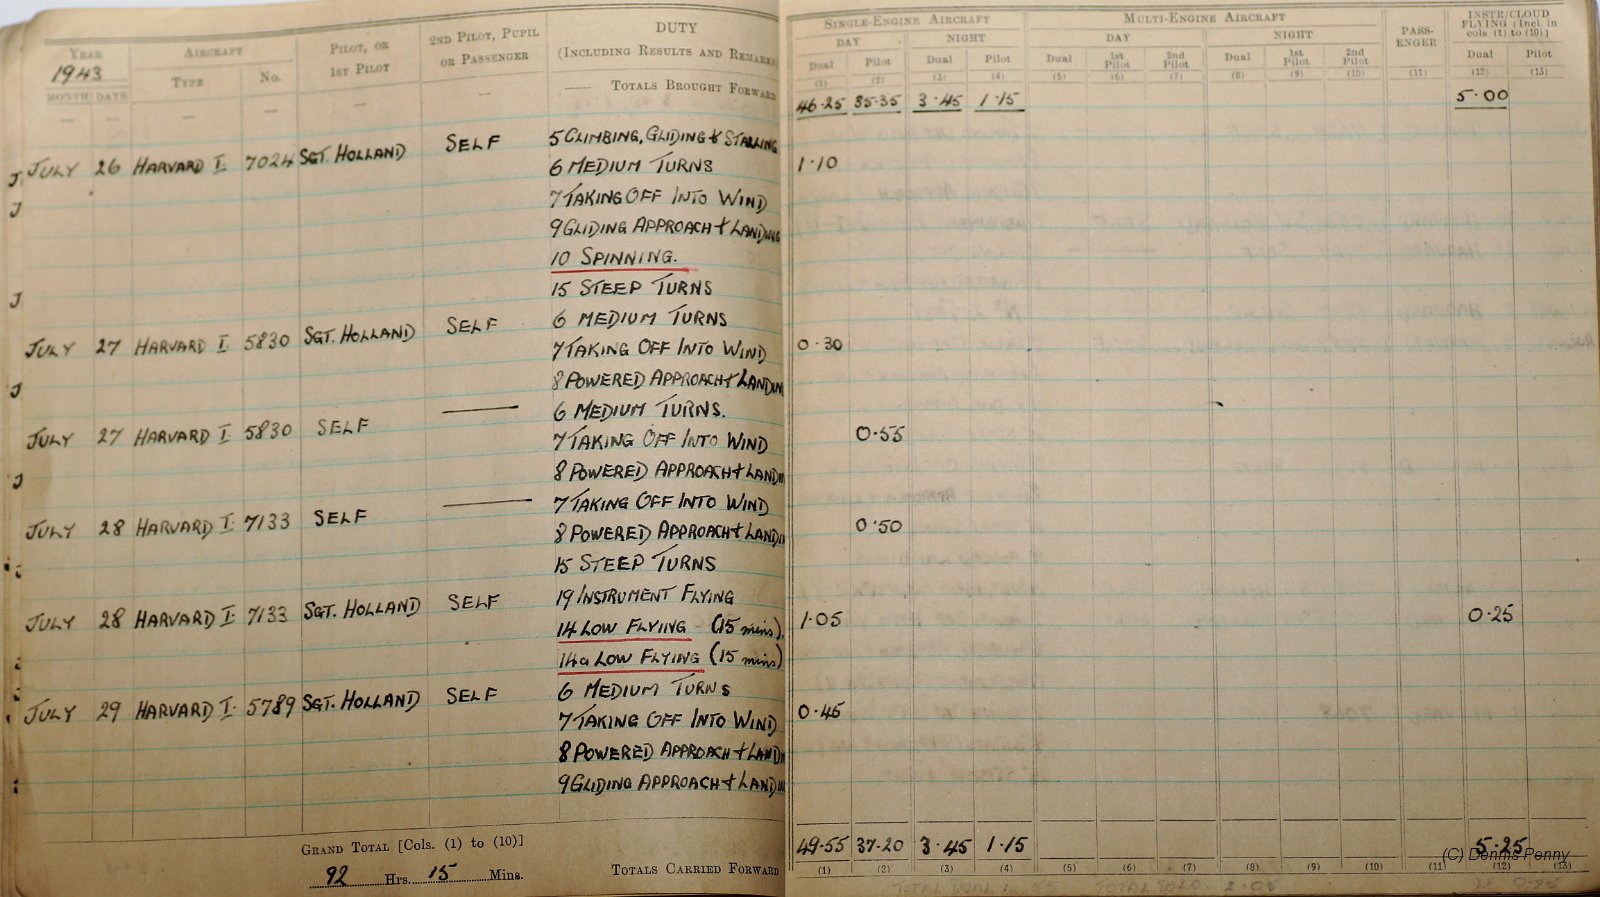 YEAR AIRCRAFT PILOT, OR 2ND PILOT, PUPIL DUTY SINGLE-ENGINE AIRCRAFT MULTI-ENGINE AIRCRAFT PASS- INSTR/CLOUD
1943 TYPE No. 1ST PILOT OR PASSENGER (INCLUDING RESULTS AND REMARKS DAY NIGHT DAY NIGHT ENGER FLYING [Incl. in
MONTH DATE cols (1) to (10)]
Dual Pilot Dual Pilot Dual 1st Pilot 2nd Pilot Dual 1st Pilot 2nd Pilot Dual Pilot
(1) (2) (3) (4) (5) (6) (7) (8) (9) (10) (11) (12) (13)
— — — — — —— TOTALS BROUGHT FORWARD 46·25 35·35 3·45 1·15 5·00
5 CLIMBING, GLIDING & STALLING
JULY 26 HARVARD I. 7024 SGT. HOLLAND SELF 6 MEDIUM TURNS 1·10
7 TAKING OFF INTO WIND
9 GLIDING APPROACH & LANDING
10 SPINNING.
15 STEEP TURNS
6 MEDIUM TURNS
JULY 27 HARVARD I. 5830 SGT. HOLLAND SELF 7 TAKING OFF INTO WIND 0·30
8 POWERED APPROACH & LANDIN
6 MEDIUM TURNS.
JULY 27 HARVARD I 5830 SELF —— 7 TAKING OFF INTO WIND 0·55
8 POWERED APPROACH & LANDIN
7 TAKING OFF INTO WIND
JULY 28 HARVARD I. 7133 SELF —— 8 POWERED APPROACH & LANDIN 0·50
15 STEEP TURNS
19 INSTRUMENT FLYING
JULY 28 HARVARD I. 7133 SGT. HOLLAND SELF 14 LOW FLYING (15 mins). 1·05 0·25
14a LOW FLYING (15 mins)
6 MEDIUM TURNS
JULY 29 HARVARD I. 5789 SGT. HOLLAND SELF 7 TAKING OFF INTO WIND 0·45
8 POWERED APPROACH & LANDIN
9 GLIDING APPROACH & LANDIN
GRAND TOTAL [Cols. (1) to (10)] 49·55 37·20 3·45 1·15 5·25
92 Hrs. 15 Mins. TOTALS CARRIED FORWARD (1) (2) (3) (4) (5) (6) (7) (8) (9) (10) (11) (12) (13)
(C) Dennis Penny
TOTAL SOLO. 2·05